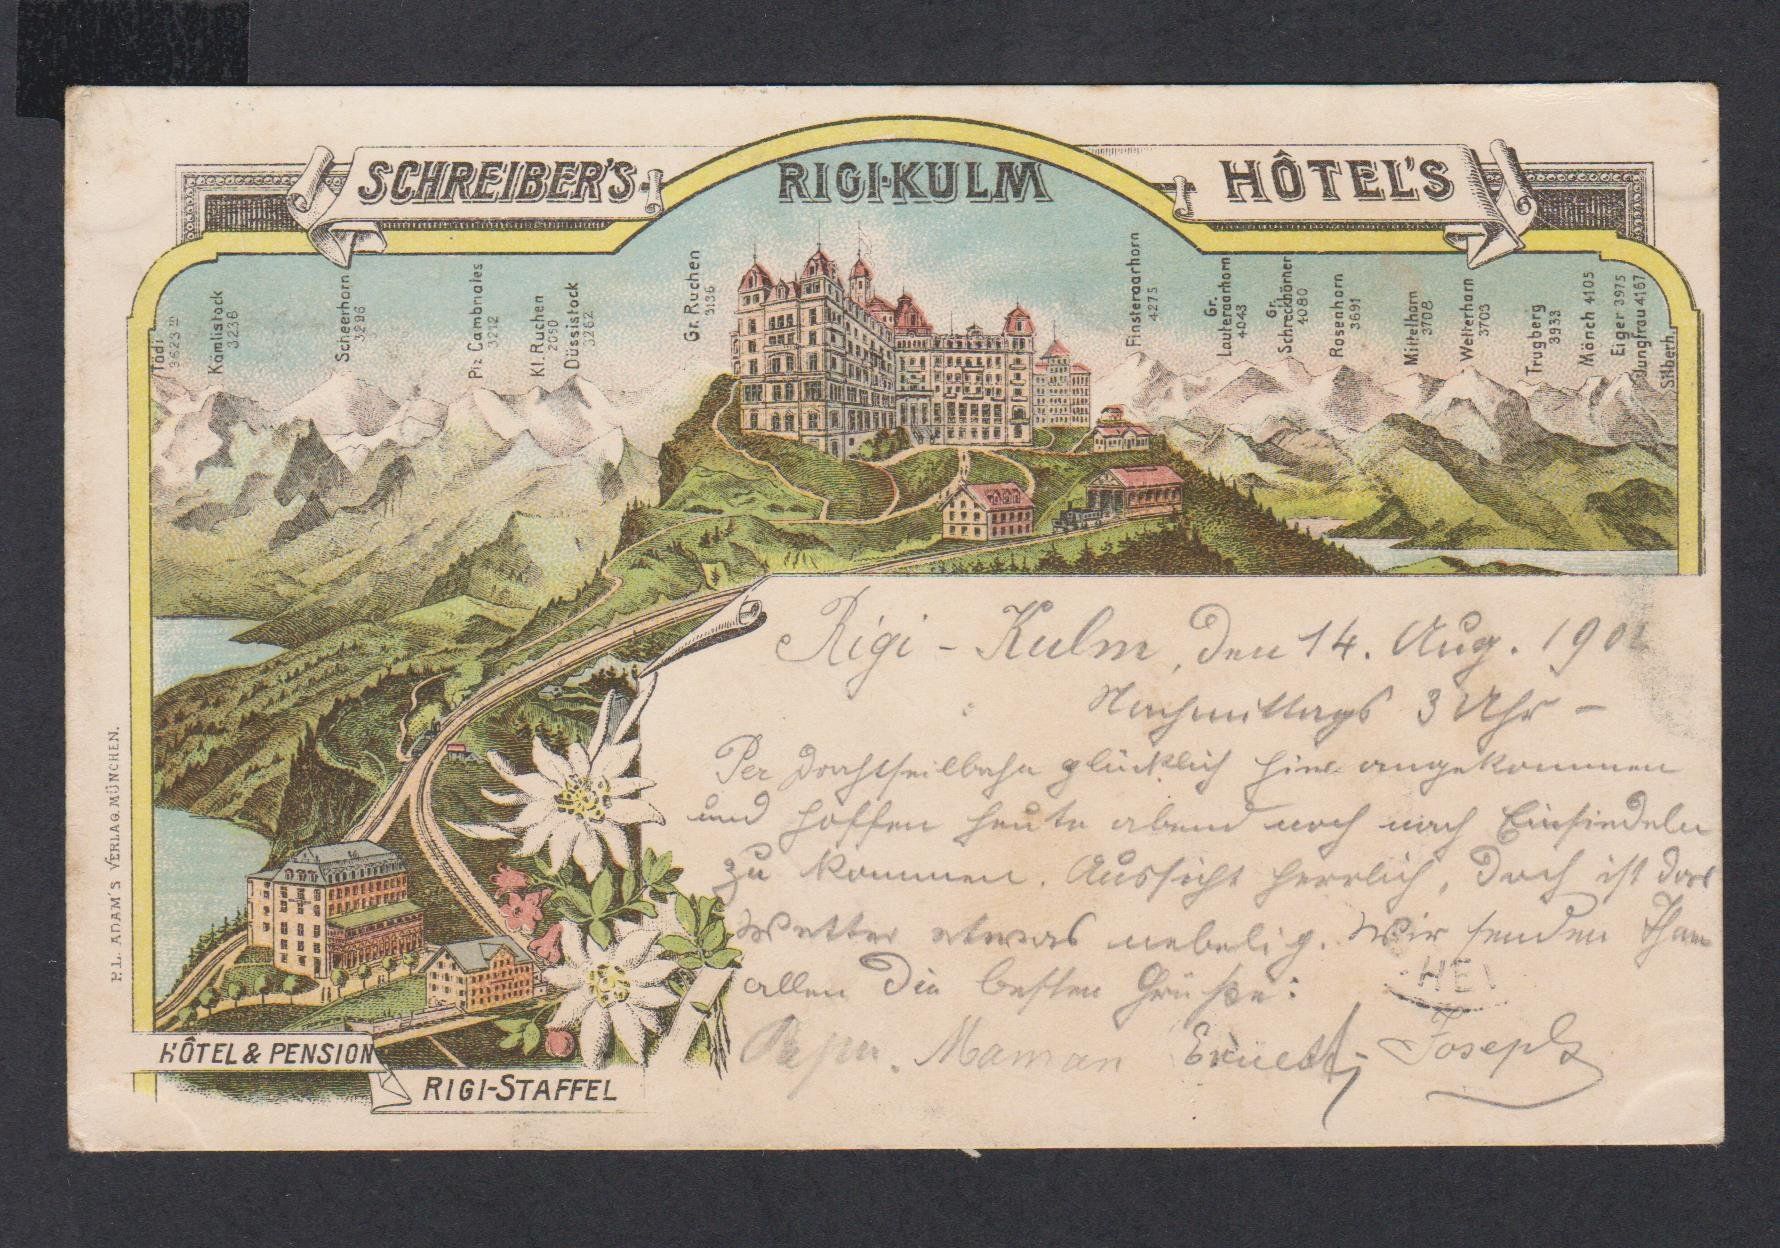 SCHREIBER'S RIGI-KULM HÔTEL'S
Tödi 3623 m
Kämlistock 3238
Scheerhorn 3296
Piz Cambnales 3212
Kl. Ruchen 2050
Düssistock 3262
Gr. Ruchen 3136
Finsteraarhorn 4275
Gr. Lauteraarhorn 4043
Gr. Schreckhörner 4080
Rosenhorn 3691
Mittelhorn 3708
Wetterhorn 3703
Trugberg 3933
Mönch 4105
Eiger 3975
Jungfrau 4167
Silberh.
Rigi-Kulm, den 14. Aug. 190
Nachmittags 3 Uhr -
Per Drahtseilbahn glücklich hier angekommen
und hoffen heute abend noch nach Einsiedeln
zu kommen. Aussicht herrlich, doch ist das
Wetter etwas nebelig. Wir senden
allen die besten Grüße:
Papa. Maman Ernest, Joseph
HÔTEL & PENSION
RIGI-STAFFEL
P.L. ADAM'S VERLAG. MÜNCHEN.